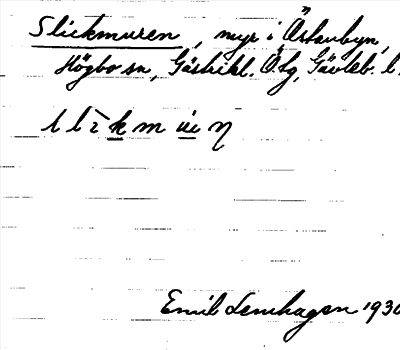 Slickmuren, myr i Östanbyn,
Högbo sn, Gästrikl. Ö.tg, Gävleb. l.
Emil Lenhagen 1930